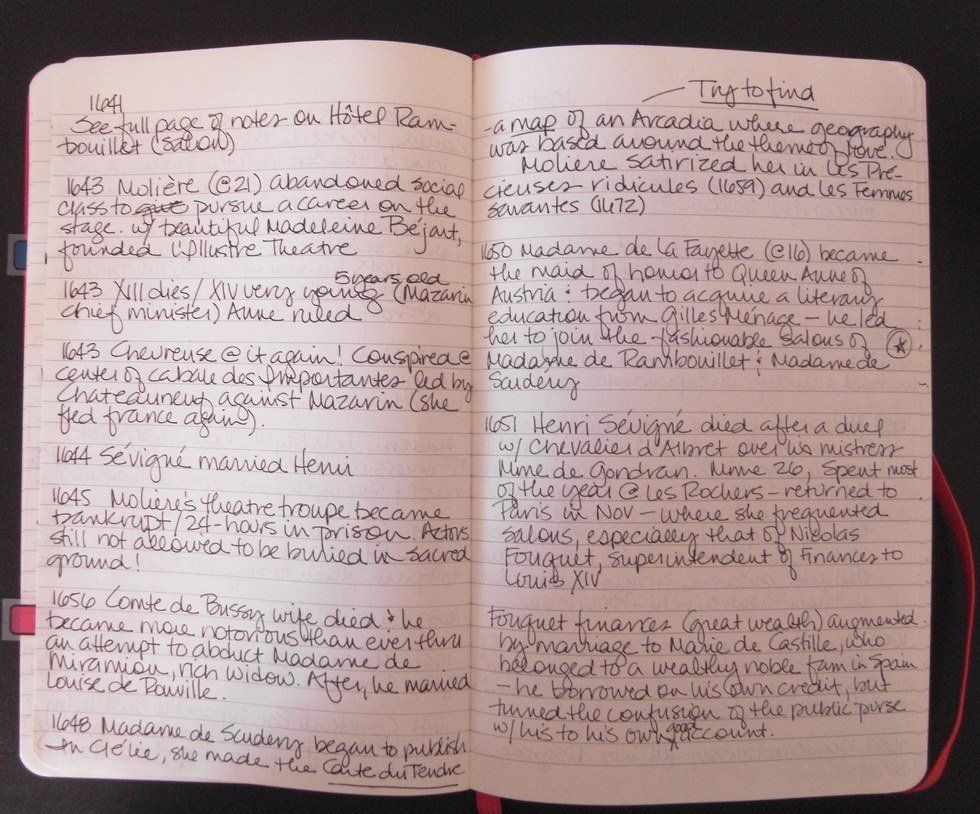 1641
See full page of notes on Hôtel Ram-
bouillet (salon)
1643 Molière (@21) abandoned social
class to pursue a career on the
stage. w/ beautiful Madeleine Béjart,
founded L'Illustre Theatre
5 years old
1643 XIII dies/XIV very young (Mazarin
chief minister) Anne ruled
1643 Chevreuse @ it again! Conspired @
center of cabale des Importantes led by
Chateauneuf against Mazarin (she
fled france again).
1644 Sévigné married Henri
1645 Molière's theatre troupe became
bankrupt/24-hours in prison. Actors
still not allowed to be buried in sacred
ground!
1656 Comte de Bussy wife died & he
became more notorious than ever thru
an attempt to abduct Madame de
Miramion, rich widow. After, he married
Louise de Rouville.
1648 Madame de Scudery began to publish
In Clélie, she made the Carte du Tendre
Try to find
-a map of an Arcadia where geography
was based around the theme of love.
Moliere satirized her in Les Pré-
cieuses ridicules (1659) and Les Femmes
savantes (1672)
1650 Madame de La Fayette (@16) became
the maid of honor to Queen Anne of
Austria & began to acquire a literary
education from Gilles Ménage – he led
her to join the fashionable salons of
Madame de Rambouillet & Madame de
Scudéry
1651 Henri Sévigné died after a duel
w/ Chevalier d'Albret over his mistress
Mme de Gondran. Mme 26, spent most
of the year @ Les Rochers – returned to
Paris in Nov – where she frequented
salons, especially that of Nicolas
Fouquet, superintendent of Finances to
Louis XIV
Fouquet finances (great wealth) augmented
by marriage to Marie de Castille, who
belonged to a wealthy noble fam in Spain
– he borrowed on his own credit, but
turned the confusion of the public purse
w/ his to his own good account.